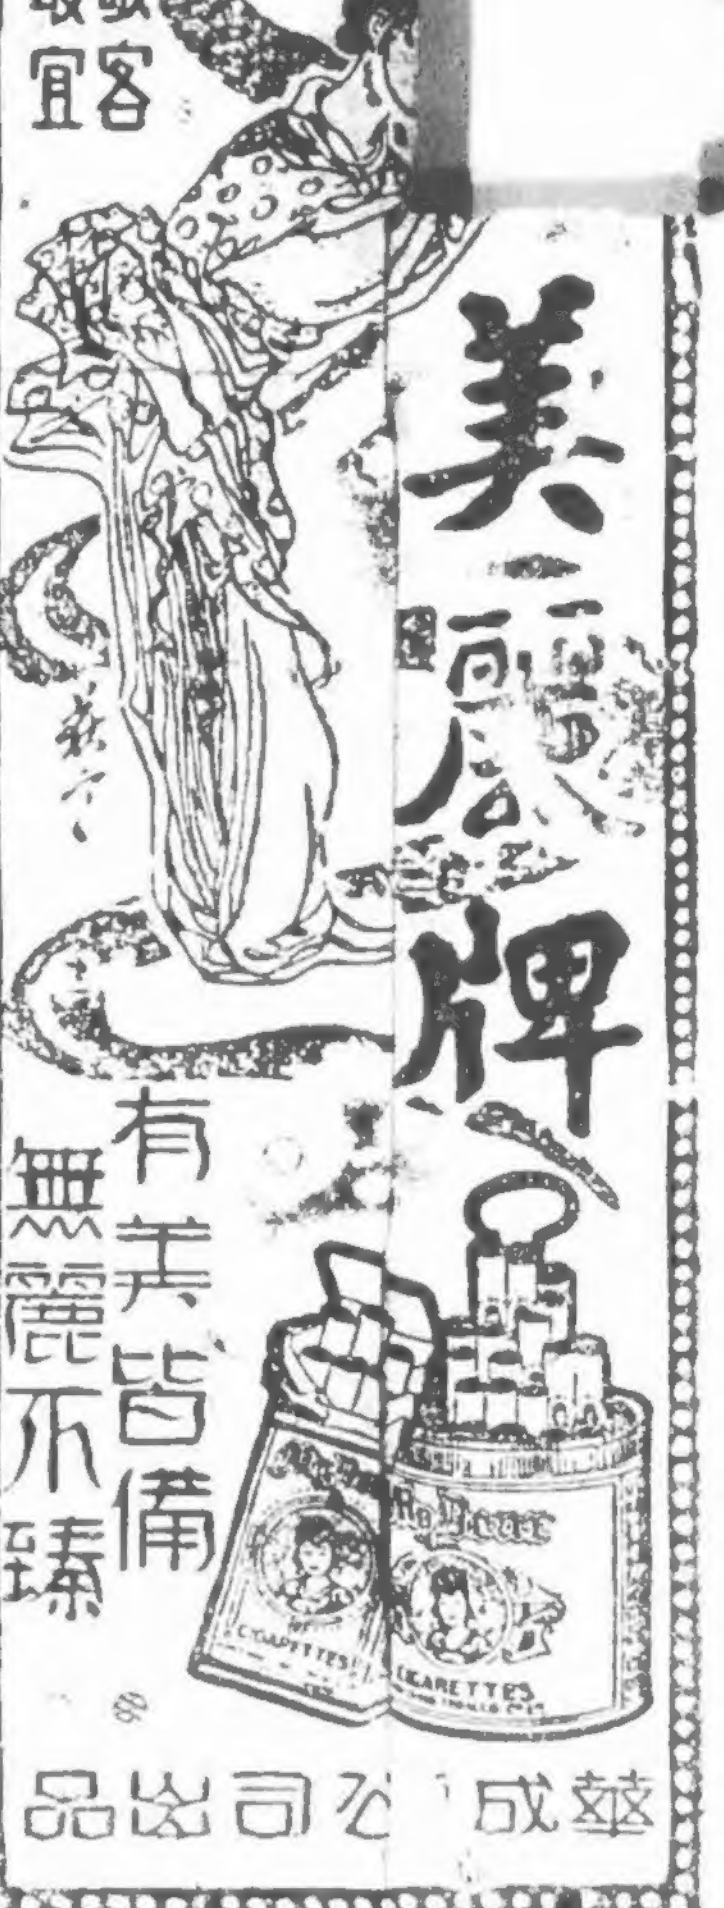 美麗牌
客
宜
有美皆備
無麗不臻
My Dear
CIGARETTES
CIGARETTES
華成公司出品